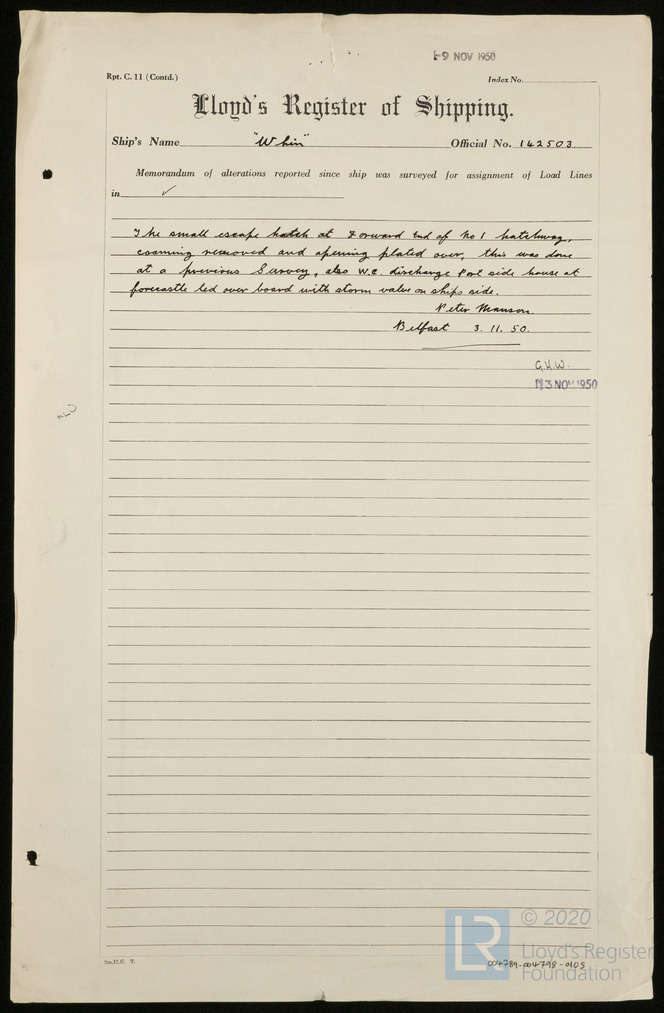 -9 NOV 1950
Rpt. C. 11 (Contd.)
Index No.
Lloyd's Register of Shipping.
Ship's Name "Whin" Official No. 142503
Memorandum of alterations reported since ship was surveyed for assignment of Load Lines
in ✓
The small escape hatch at Forward End of No 1 hatchway,
coaming removed and opening plated over, this was done
at a previous Survey, also W.C. discharge Port side house at
forecastle led over board with storm valve on ships side.
Peter Manson.
Belfast 3.11.50.
G.H.W.
13 NOV 1950
© 2020
LR
Lloyd's Register
Foundation
004789-004798-0105